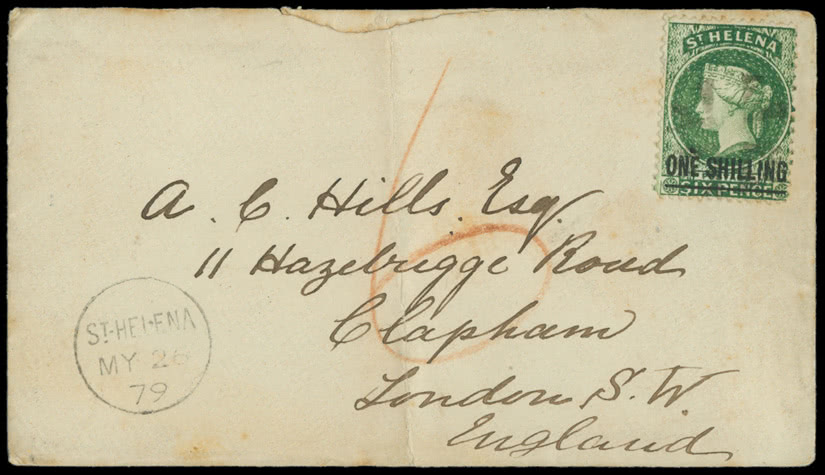 ST HELENA
ONE SHILLING
SIXPENCE
6
A. C. Hills. Esq.
11 Hazebrigge Road
Clapham
London S. W
England
ST. HELENA
MY 26
79